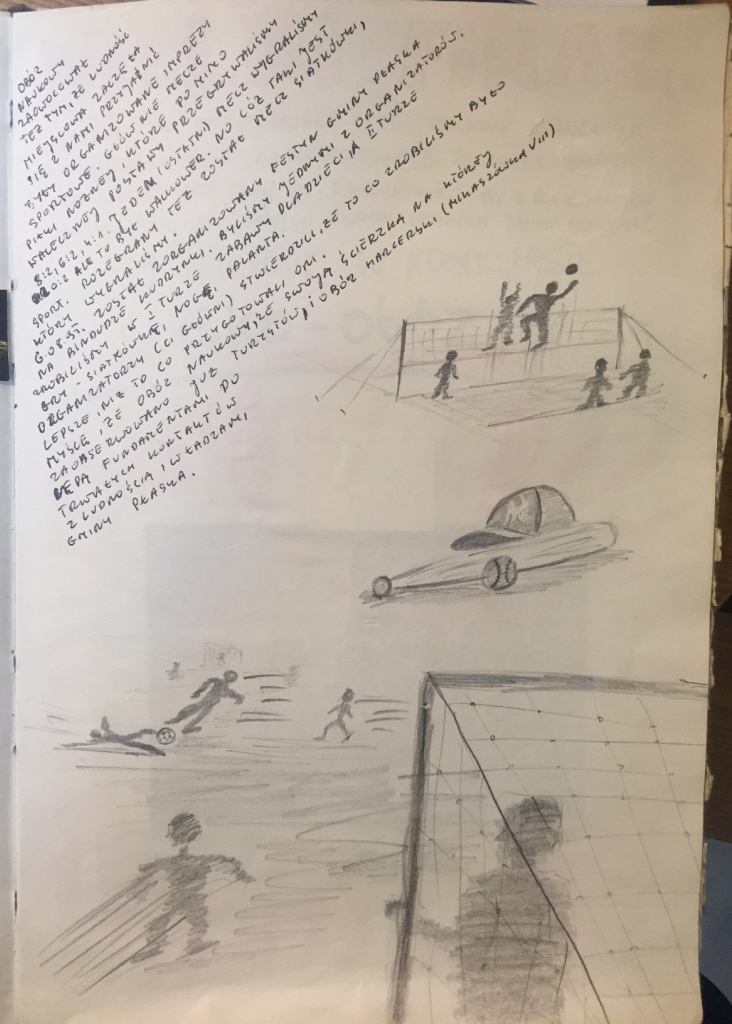 OBÓZ
NAUKOWY
ZAOWOCOWAŁ
TEŻ TYM, ŻE LUDNOŚĆ
MIEJSCOWA ZACZĘŁA
SIĘ Z NAMI PRZYJAŹNIĆ
BYŁY ORGANIZOWANE IMPREZY
SPORTOWE. GŁÓWNIE MECZE
PIŁKI NOŻNEJ, KTÓRE POMIMO
WALECZNEJ POSTAWY PRZEGRYWALIŚMY
8:2, 6:2, 4:1. JEDEN (OSTATNI) MECZ WYGRALIŚMY
0:2 ALE TO BYŁ WALKOWER. NO CÓŻ TAKI JEST
SPORT. ROZEGRANY TEŻ ZOSTAŁ MECZ SIATKÓWKI,
KTÓRY WYGRALIŚMY.
6.08.95. ZOSTAŁ ZORGANIZOWANY FESTYN GMINY PŁASKA
NA BINDUDZE KUDRYNKI. BYLIŚMY JEDNYMI Z ORGANIZATORÓW.
ZROBILIŚMY W I TURZE ZABAWY DLA DZIECI, A II TURZE
GRY - SIATKÓWKĘ, NOGĘ, PALANTA.
ORGANIZATORZY (CI GŁÓWNI) STWIERDZILI, ŻE TO CO ZROBILIŚMY BYŁO
LEPSZE, NIŻ TO CO PRZYGOTOWALI ONI.
MYŚLĘ, ŻE OBÓZ NAUKOWY, ZE SWOJĄ ŚCIERZKĄ NA KTÓREJ
ZAOBSERWOWANO JUŻ TURYSTÓW, I OBÓZ HARCERSKI (MIKASZÓWKA VIII)
BĘDĄ FUNDAMENTAMI DO
TRWAŁYCH KONTAKTÓW
Z LUDNOŚCIĄ I WŁADZAMI
GMINY PŁASKA.